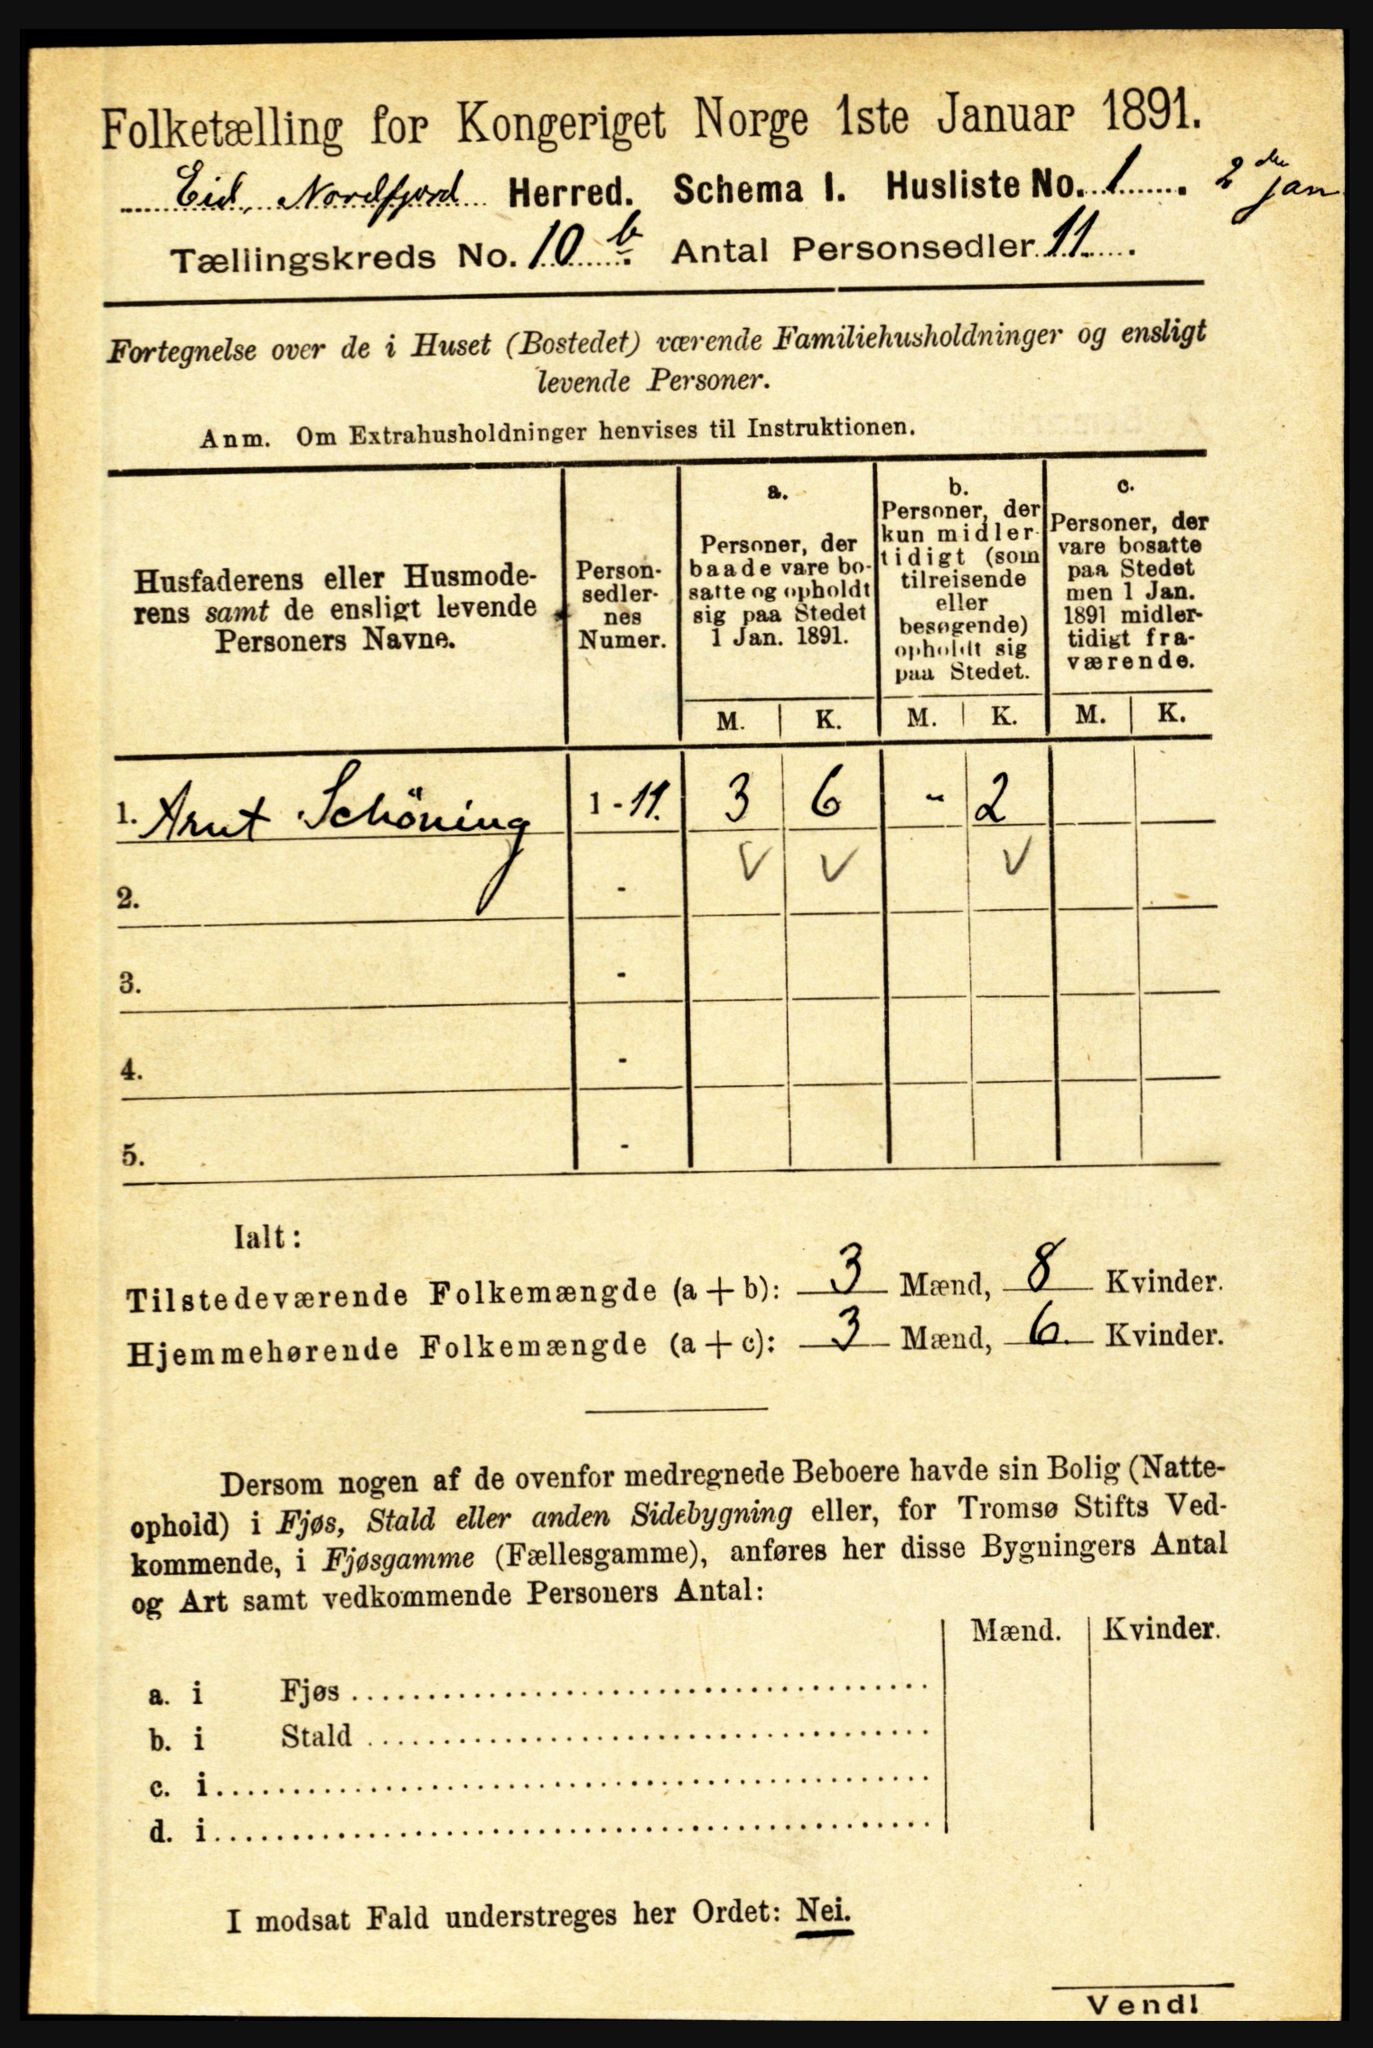 Folketælling for Kongeriget Norge 1ste Januar 1891.
Eid, Nordfjord Herred. Schema I. Husliste No. 1. 2den Jan
Tællingskreds No. 10 b. Antal Personsedler 11.
Fortegnelse over de i Huset (Bostedet) værende Familiehusholdninger og ensligt
levende Personer.
Anm. Om Extrahusholdninger henvises til Instruktionen.
Husfaderens eller Husmode-
rens samt de ensligt levende
Personers Navne.
Person-
sedler-
nes
Numer.
a.
Personer, der
baade vare bo-
satte og opholdt
sig paa Stedet
1 Jan. 1891.
b.
Personer, der
kun midler-
tidigt (som
tilreisende
eller
besøgende)
opholdt sig
paa Stedet.
c.
Personer, der
vare bosatte
paa Stedet
men 1 Jan.
1891 midler-
tidigt fra-
værende.
M. K. M. K. M. K.
1. Arnt Schöning 1 - 11. 3 6 - 2
2. - V V V
3. -
4. -
5. -
Ialt:
Tilstedeværende Folkemængde (a + b): 3 Mænd, 8 Kvinder.
Hjemmehørende Folkemængde (a + c): 3 Mænd, 6 Kvinder.
Dersom nogen af de ovenfor medregnede Beboere havde sin Bolig (Natte-
ophold) i Fjøs, Stald eller anden Sidebygning eller, for Tromsø Stifts Ved-
kommende, i Fjøsgamme (Fællesgamme), anføres her disse Bygningers Antal
og Art samt vedkommende Personers Antal:
Mænd. Kvinder.
a. i Fjøs
b. i Stald
c. i
d. i
I modsat Fald understreges her Ordet: Nei.
Vend!